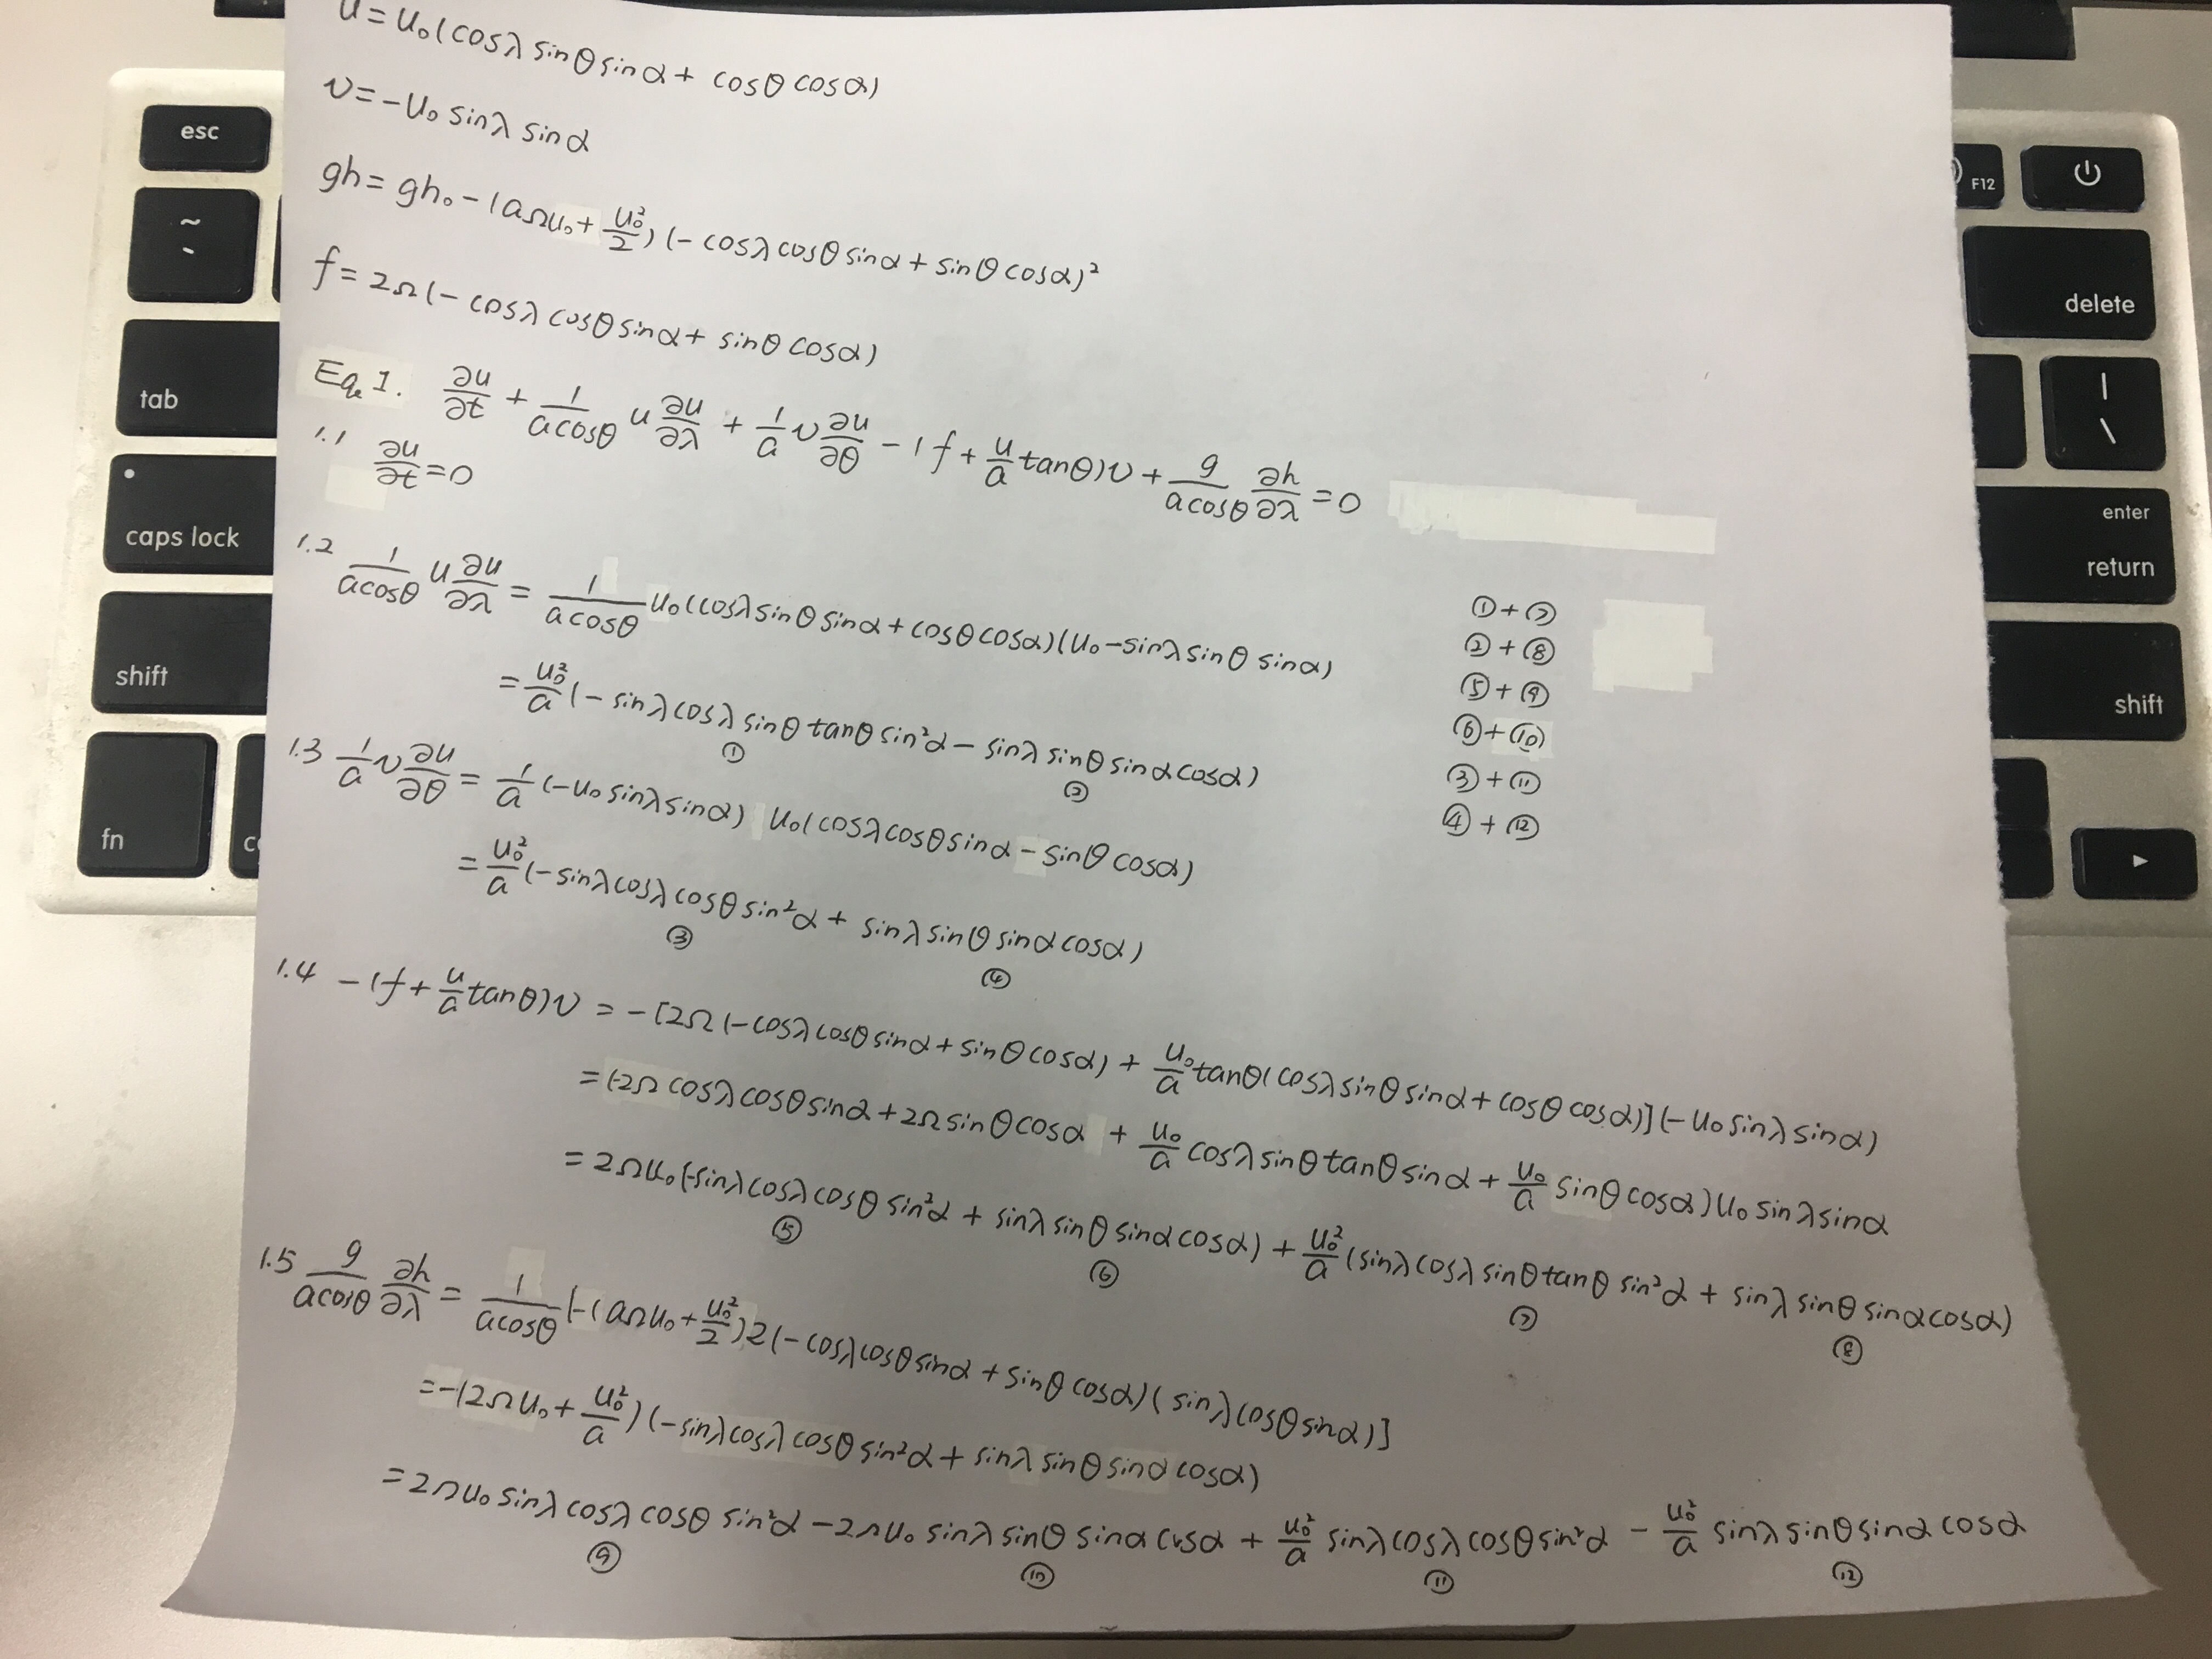 u = u₀(cosλ sinθ sinα + cosθ cosα)
v = -u₀ sinλ sinα
gh = gh₀ - (aΩu₀ + u₀²/2)(-cosλ cosθ sinα + sinθ cosα)²
f = 2Ω(-cosλ cosθ sinα + sinθ cosα)
Eq. 1. ∂u/∂t + 1/(a cosθ) u ∂u/∂λ + 1/a v ∂u/∂θ - (f + u/a tanθ)v + g/(a cosθ) ∂h/∂λ = 0
1.1 ∂u/∂t = 0
1.2 1/(a cosθ) u ∂u/∂λ = 1/(a cosθ) u₀(cosλ sinθ sinα + cosθ cosα)(u₀ - sinλ sinθ sinα)
= u₀²/a (-sinλ cosλ sinθ tanθ sin²α - sinλ sinθ sinα cosα)
① ②
1.3 1/a v ∂u/∂θ = 1/a (-u₀ sinλ sinα) u₀(cosλ cosθ sinα - sinθ cosα)
= u₀²/a (-sinλ cosλ cosθ sin²α + sinλ sinθ sinα cosα)
③ ④
1.4 -(f + u/a tanθ)v = -[2Ω(-cosλ cosθ sinα + sinθ cosα) + u₀/a tanθ(cosλ sinθ sinα + cosθ cosα)](-u₀ sinλ sinα)
= (-2Ω cosλ cosθ sinα + 2Ω sinθ cosα + u₀/a cosλ sinθ tanθ sinα + u₀/a sinθ cosα) u₀ sinλ sinα
= 2Ωu₀(-sinλ cosλ cosθ sin²α + sinλ sinθ sinα cosα) + u₀²/a (sinλ cosλ sinθ tanθ sin²α + sinλ sinθ sinα cosα)
⑤ ⑥ ⑦ ⑧
1.5 g/(a cosθ) ∂h/∂λ = 1/(a cosθ) [-(aΩu₀ + u₀²/2)2(-cosλ cosθ sinα + sinθ cosα)(sinλ cosθ sinα)]
= -(2Ωu₀ + u₀²/a)(-sinλ cosλ cosθ sin²α + sinλ sinθ sinα cosα)
= 2Ωu₀ sinλ cosλ cosθ sin²α - 2Ωu₀ sinλ sinθ sinα cosα + u₀²/a sinλ cosλ cosθ sin²α - u₀²/a sinλ sinθ sinα cosα
⑨ ⑩ ⑪ ⑫
① + ⑦
② + ⑧
⑤ + ⑨
⑥ + ⑩
③ + ⑪
④ + ⑫
esc
~
tab
caps lock
shift
fn
F12
delete
|
\
enter
return
shift